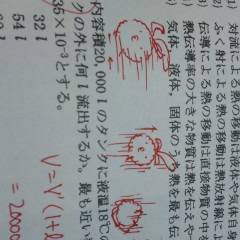 対流による熱の移動は液体や気体自身
ふく射による熱の移動は熱放射線によ
伝導による熱の移動は直接物質の中
熱伝導率の大きな物質は熱を伝えや
気体、液体、固体のうち熱を最も伝
内容積20,000 lのタンクに液温18℃の
クの外に何 l 流出するか。最も近い
35 × 10⁻³とする。
32 l
54 l
V = V'(1+
= 20000